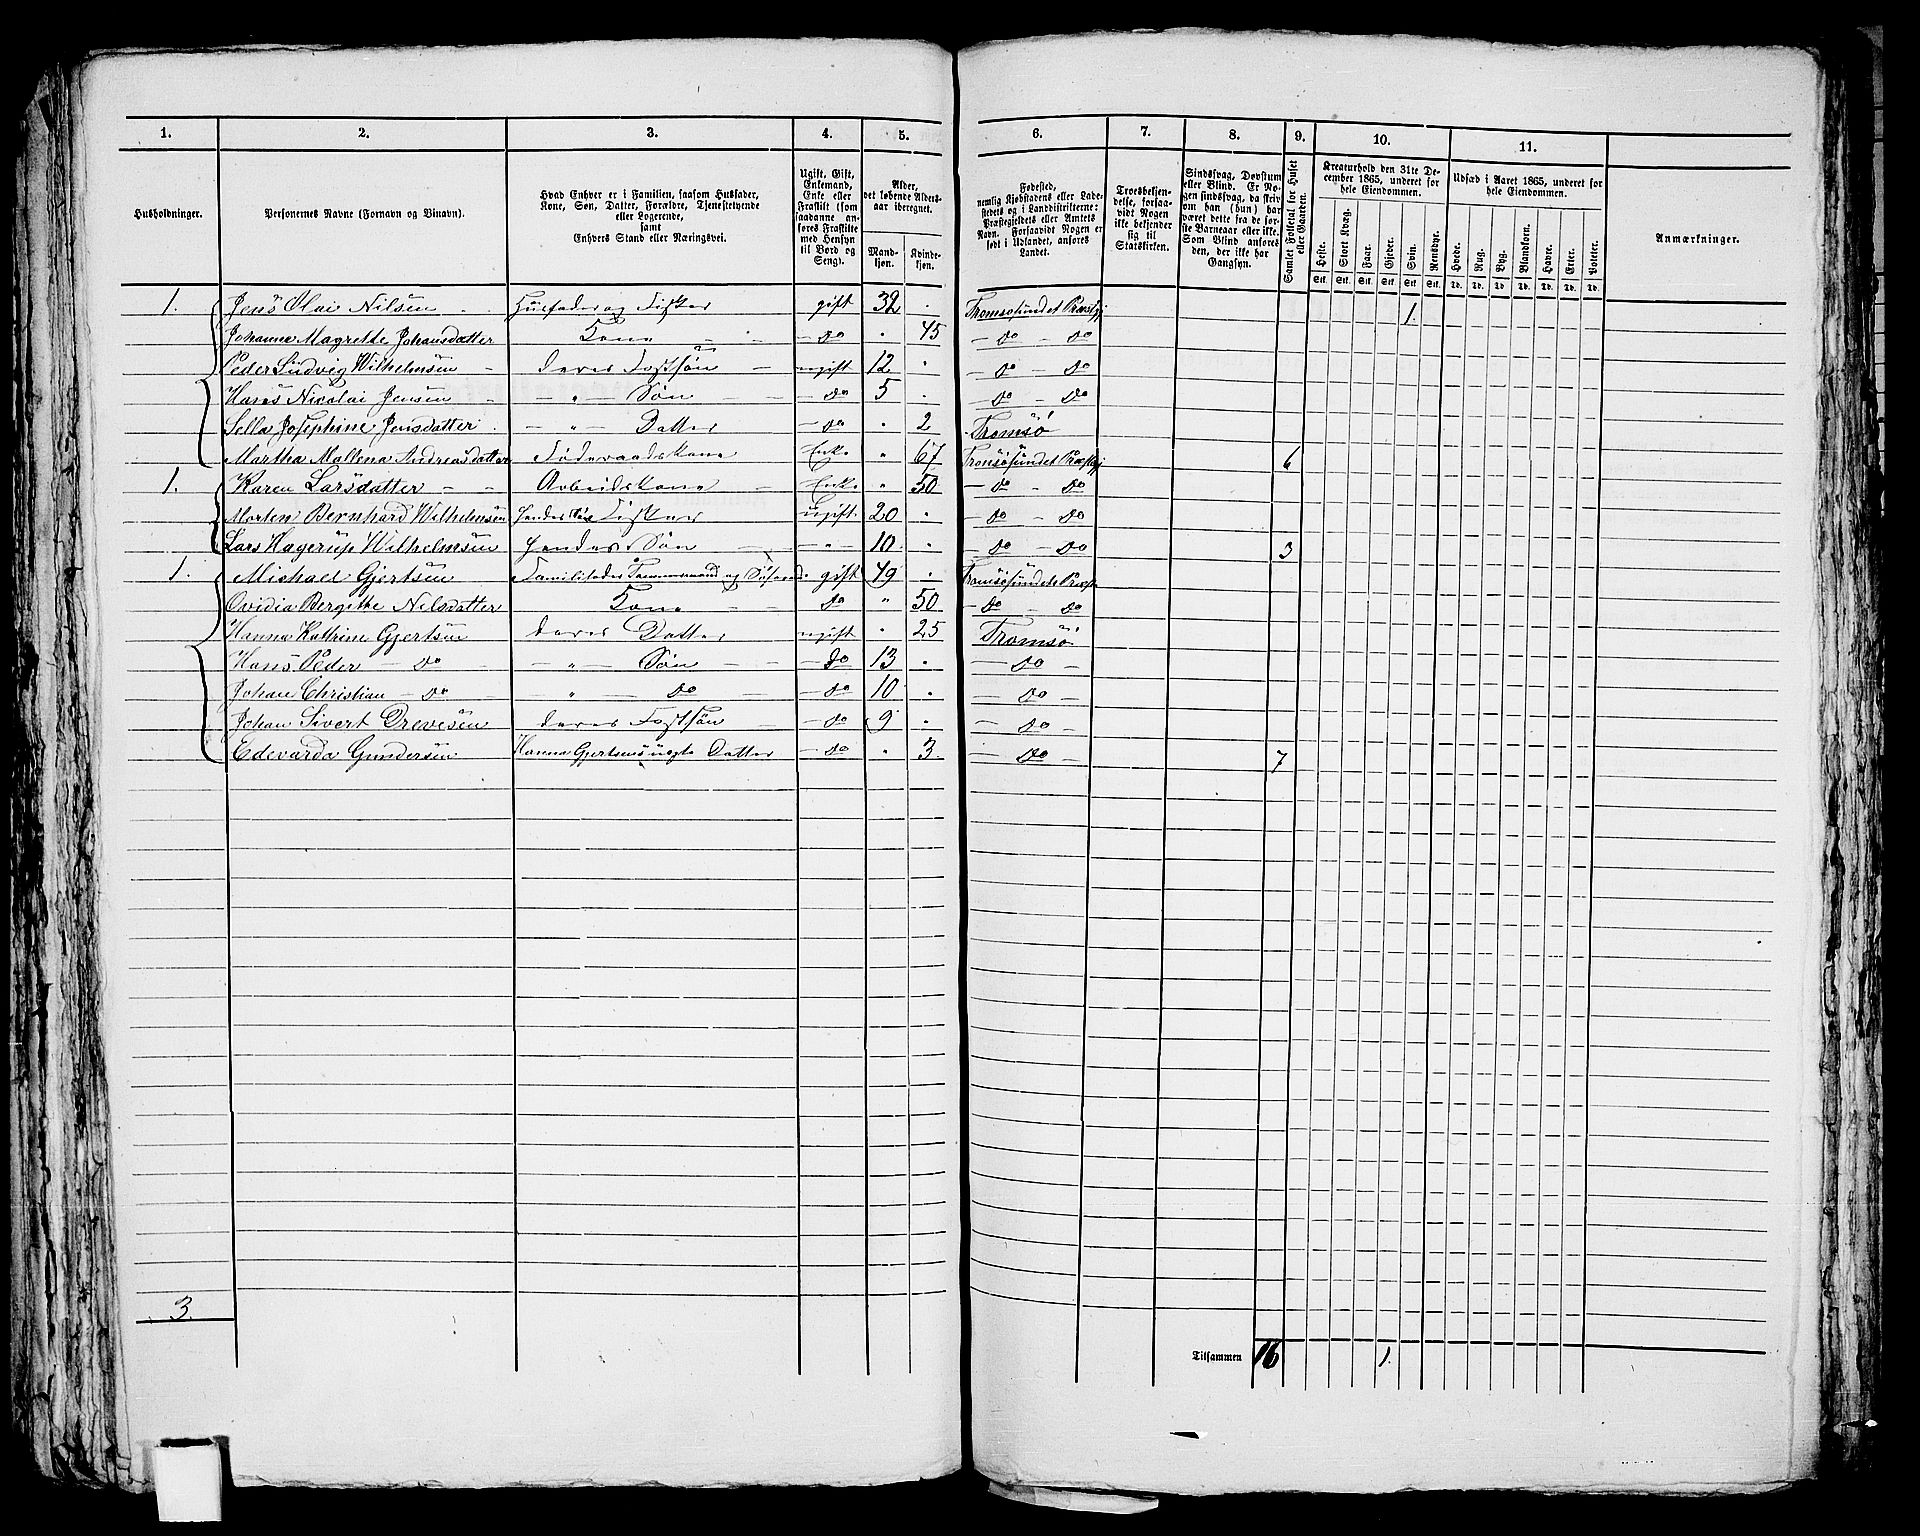 1. 2. 3. 4. 5. 6. 7. 8. 9. 10. 11.
Husholdninger.
Personernes Navne (Fornavn og Binavn).
Hvad Enhver er i Familien, saasom Husfader,
Kone, Søn, Datter, Forældre, Tjenestetyende
eller Logerende,
samt
Enhvers Stand eller Næringsvei.
Ugift, Gift,
Enkemand,
Enke eller
Fraskilt (som
saadanne an-
føres Fraskilte
med Hensyn
til Bord og
Seng).
Alder,
det løbende Alders-
aar iberegnet.
Mand-
kjøn.
Kvinde-
kjøn.
Fødested,
nemlig Kjøbstadens eller Lade-
stedets og i Landdistrikterne:
Præstegjeldets eller Amtets
Navn. Forsaavidt Nogen er
født i Udlandet, anføres
Landet.
Troesbekjen-
delse, forsaa-
vidt Nogen
ikke bekjender
sig til
Statskirken.
Sindssvag, Døvstum
eller Blind. Er No-
gen sindssvag, da skriv
om han (hun) har
været dette fra de før-
ste Barneaar eller ikke.
Som Blind anføres
den, der ikke har
Gangsyn.
Samlet Folketal for Huset
eller Gaarden.
Kreaturhold den 31te De-
cember 1865, underet for
hele Eiendommen.
Heste. Stort Kvæg. Faar. Gjeder. Svin. Rensdyr.
Stk. Stk. Stk. Stk. Stk. Stk.
Udsæd i Aaret 1865, underet for
hele Eiendommen.
Hvede. Rug. Byg. Blandkorn. Havre. Erter. Poteter.
Td. Td. Td. Td. Td. Td. Td.
Anmærkninger.
1. Jens Olai Nilsen Husfader og Fisker gift 32 Tromsøsundet Præstgj 1.
Johanne Magrethe Johansdatter Kone do 45 do do
Peder Ludvig Wilhelmsen deres Fostsøn ugift 12 do do
Hans Nicolai Jensen " Søn do 5 do do
Sella Josephine Jensdatter " Datter do 2 Tromsö
Martha Mallena Andreasdatter Föderaadskone Enke " 67 Tromsøsundet Præstgj 6
1. Karen Larsdatter Arbeidskone Enke " 50 do do
Morten Bernhard Wilhelmsen Hendes Søn Fisker Ugift 20 do do
Lars Hagerup Wilhelmsen Hendes Søn " 10 do do 3
1. Michael Gjertsen Familifader Tømmermand og gift 49 Tromsøsundets Præst
Ovidia Bergithe Nilsdatter Kone do " 50 do do
Hanna Kathrine Gjertsen deres Datter ugift " 25 Tromsö
Hans Peder do " Søn do 13 do
Johan Christian do " do do 10 do
Johan Sivert Drevesen deres Fostsøn do 9 do
Edevarda Gundersen Hanna Gjertsens uægte Datter do 3 do 7
3.
Tilsammen 16 1.